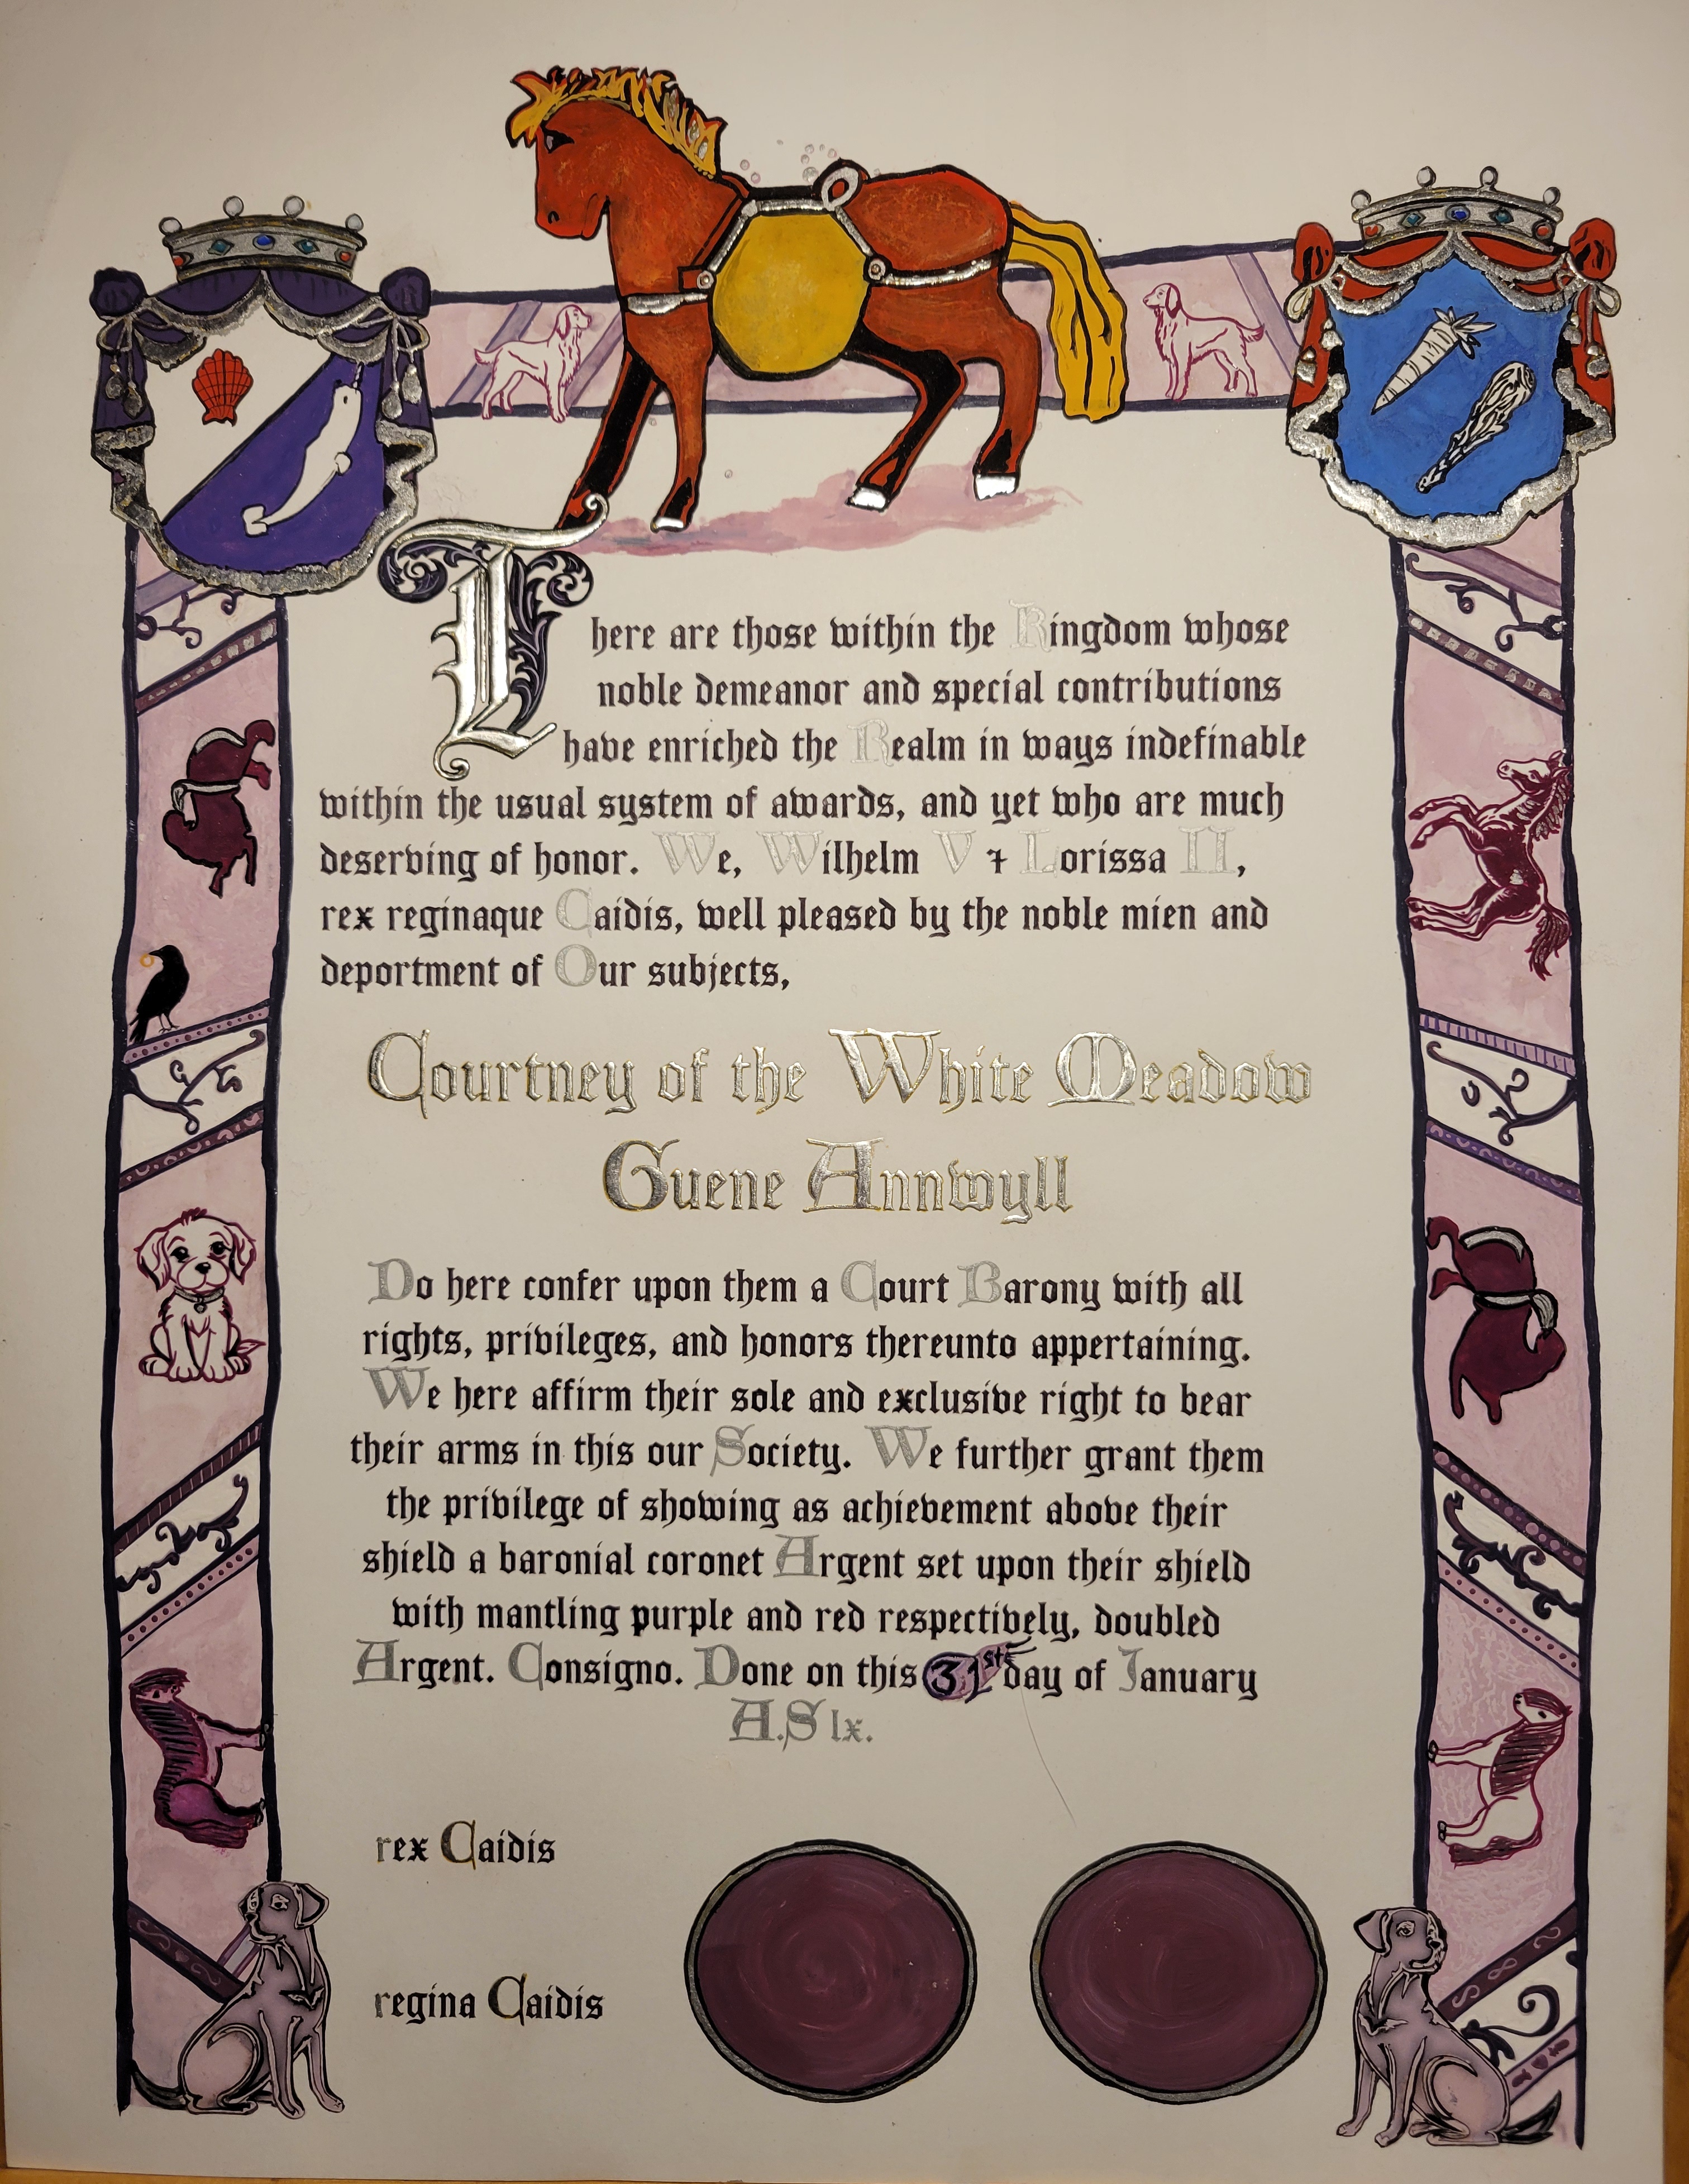 There are those within the Kingdom whose
noble demeanor and special contributions
have enriched the Realm in ways indefinable
within the usual system of awards, and yet who are much
deserving of honor. We, Wilhelm V + Lorissa II,
rex reginaque Caidis, well pleased by the noble mien and
deportment of Our subjects,
Courtney of the White Meadow
Guene Annwyll
Do here confer upon them a Court Barony with all
rights, privileges, and honors thereunto appertaining.
We here affirm their sole and exclusive right to bear
their arms in this our Society. We further grant them
the privilege of showing as achievement above their
shield a baronial coronet Argent set upon their shield
with mantling purple and red respectively, doubled
Argent. Consigno. Done on this 31st day of January
A.S lx.
rex Caidis
regina Caidis